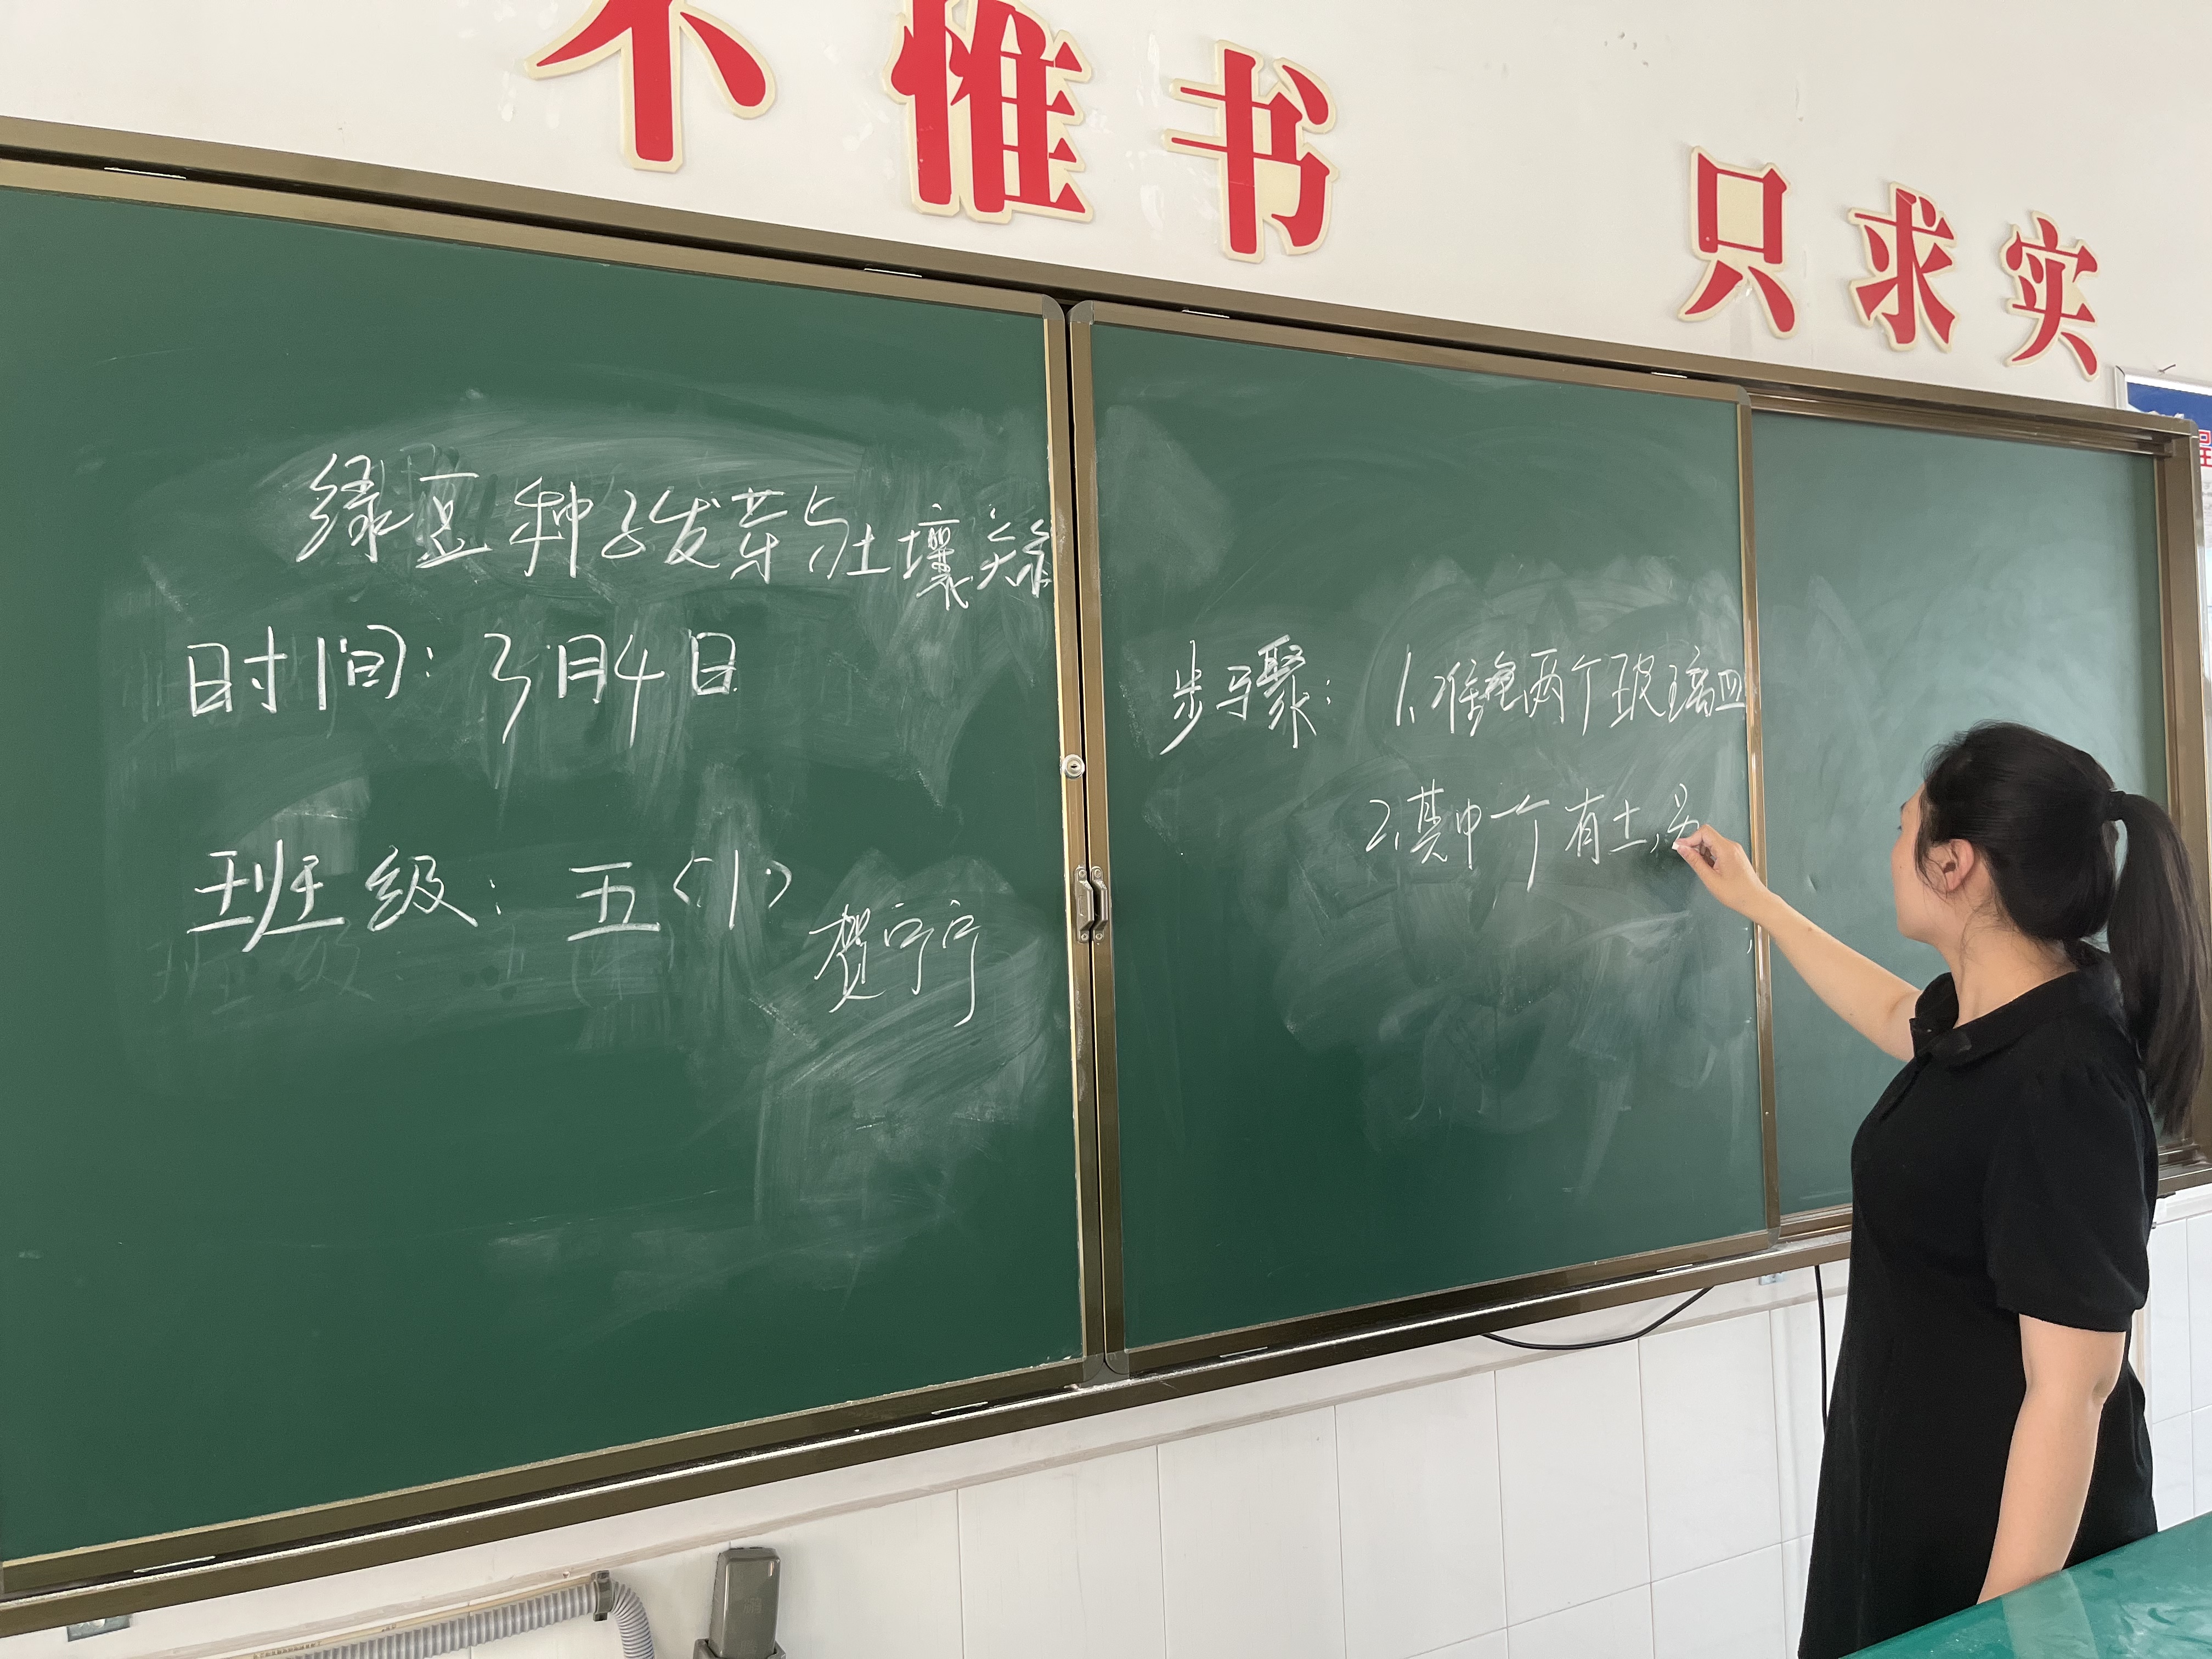 不惟书 只求实
绿豆种子发芽与土壤关系
时间：3月4日
班级：五〈1〉
贺宁宁
步骤：1、准备两个玻璃皿
2、其中一个有土，另